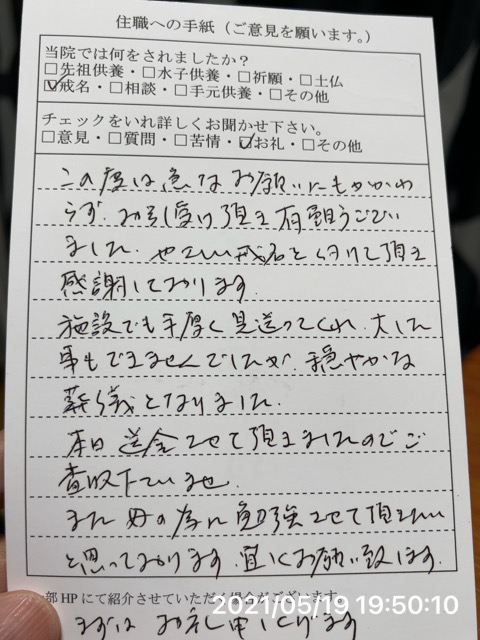 住職への手紙（ご意見を願います。）
当院では何をされましたか？
□先祖供養・□水子供養・□祈願・□土仏
☑戒名・□相談・□手元供養・□その他
チェックをいれ詳しくお聞かせ下さい。
□意見・□質問・□苦情・☑お礼・□その他
この度は急なお願いにもかかわ
らず、お引受け頂き有難うござい
ました。やさしい戒名を付けて頂き
感謝しております。
施設でも手厚く見送ってくれ、大した
事もできませんでしたが、穏やかな
葬儀となりました。
本日送金させて頂きましたのでご
査収下さいませ。
また の度に勉強させて頂きたい
と思っております。宜しくお願い致します。
部HPにて紹介させていただく場合がございます。
まずは お礼申し上げます
2021/05/19 19:50:10